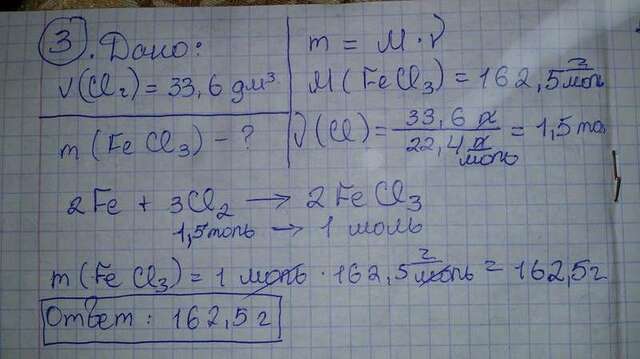 3. Дано:
V(Cl₂) = 33,6 дм³
m (FeCl₃) - ?
m = M · ν
M(FeCl₃) = 162,5 г/моль
ν(Cl) = 33,6 л / 22,4 л/моль = 1,5 моль
2Fe + 3Cl₂ → 2FeCl₃
1,5 моль → 1 моль
m (FeCl₃) = 1 моль · 162,5 г/моль = 162,5 г
Ответ: 162,5 г